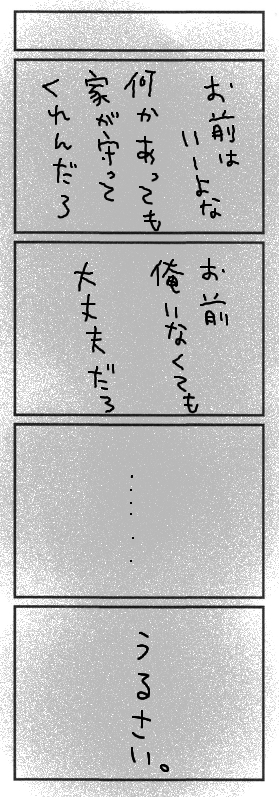 お前は
いーよな
何かあっても
家が守って
くれんだろ
お前
俺いなくても
大丈夫だろ
.....
うるさい。